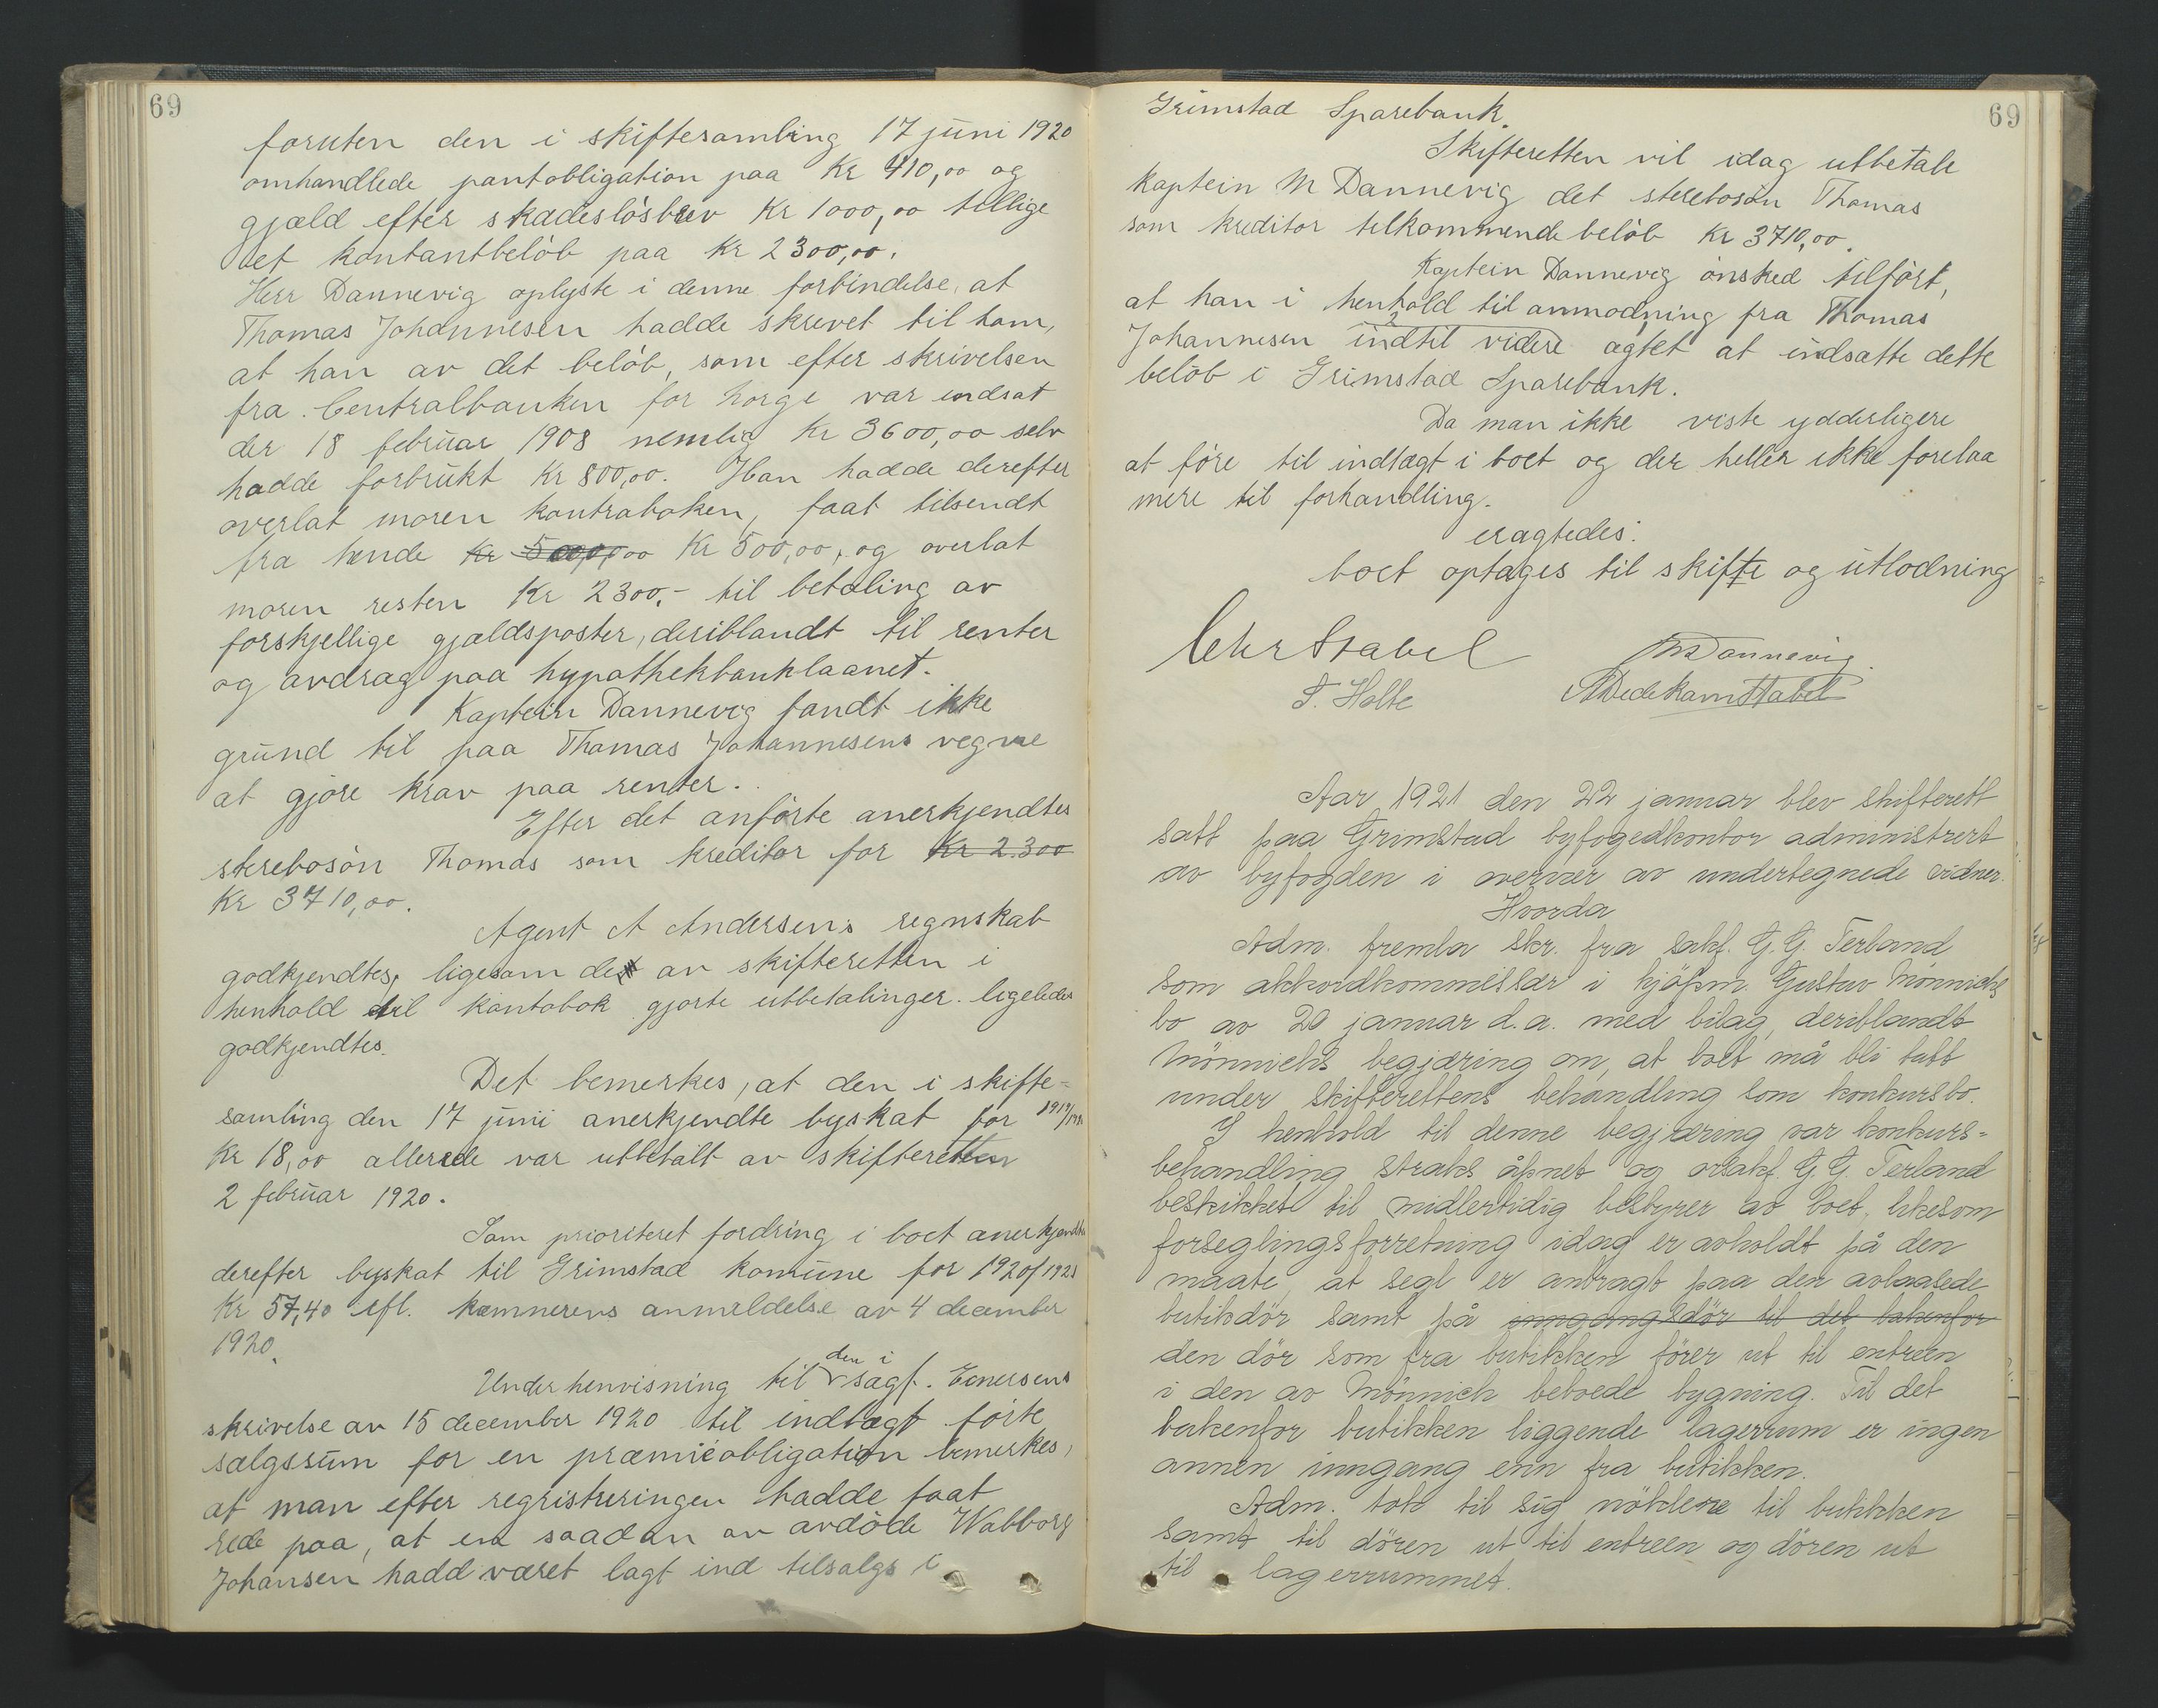 69
foruten den i skiftesamling 17 juni 1920
omhandlede pantobligation paa Kr 410,00 og
gjæld efter skadesløsbrev Kr 1000,00 tillige
et kontantbeløb paa Kr 2300,00.
Herr Dannevig oplyste i denne forbindelse, at
Thomas Johannesen hadde skrevet til ham,
at han av det beløb, som efter skrivelsen
fra Centralbanken for Norge var indsat
der 18 februar 1908 nemlig Kr 3600,00 selv
hadde forbrukt Kr 800,00. Han hadde derefter
overlat moren kontraboken, faat tilsendt
fra hende Kr 5000,00 Kr 500,00, og overlat
moren resten Kr 2300,- til betaling av
forskjellige gjældsposter, deriblandt til renter
og avdrag paa hypothekbanklaanet.
Kaptein Dannevig fandt ikke
grund til paa Thomas Johannesens vegne
at gjøre krav paa renter.
Efter det anførte anerkjendtes
stervbosøn Thomas som kreditor for Kr 2.300
Kr 3710,00.
Agent A Andersens regnskab
godkjendtes, ligesom de av skifteretten i
henhold til kontobok gjorte utbetalinger ligeledes
godkjendtes.
Det bemerkes, at den i skifte-
samling den 17 juni anerkjendte byskat for 1919/1920
Kr 18,00 allerede var utbetalt av skifteretten
2 februar 1920.
Som prioriteret fordring i boet anerkjendtes
derefter byskat til Grimstad komune for 1920/1921
Kr 57,40 efl. kæmnerens anmeldelse av 4 december
1920.
Under henvisning til den i sagf. Evnersens
skrivelse av 15 december 1920 til indtægt førte
salgssum for en præmieobligation bemerkes,
at man efter registreringen hadde faat
rede paa, at en saadan av avdøde Walborg
Johansen hadd været lagt ind tilsalgs i
69
Grimstad Sparebank.
Skifteretten vil idag utbetale
kaptein M Dannevig det stervbosøn Thomas
som kreditor tilkommende beløb Kr 3710,00.
Kaptein Dannevig ønsked tilført,
at han i henhold til anmodning fra Thomas
Johannesen indtil videre agtet at indsætte dette
beløb i Grimstad Sparebank.
Da man ikke viste ydderligere
at føre til indtægt i boet og der heller ikke forelaa
mere til forhandling.
eragtedes:
boet optages til skifte og utlodning
Chr Stabel
M Dannevig.
T. Holte
A Dedekam Stabel
Aar 1921 den 22 januar blev skifterett
satt paa Grimstad byfogedkontor administrert
av byfogden i overvær av undertegnede vidner.
Hvorda
Adm. fremla skr. fra sakf. G.G. Terland
som akkordkommissær i kjøpm. Gustav Mønnichs
bo av 20 januar d.a. med bilag, deriblandt
Mønnichs begjæring om, at boet må bli tatt
under skifterettens behandling som konkursbo.
I henhold til denne begjæring var konkurs-
behandling straks åpnet og orsakf. G.G. Terland
beskikket til midlertidig bestyrer av boet, likesom
forseglingsforretning idag er avholdt på den
maate, at segl er anbragt paa den avlaasede
butikdør samt på inngangsdør til det bakenfor
den dør som fra butikken fører ut til entreen
i den av Mønnich beboede bygning. Til det
bakenfor butikken liggende lagerrum er ingen
annen inngang enn fra butikken.
Adm. tok til sig nøklene til butikken
samt til døren ut til entreen og døren ut
til lagerrummet.